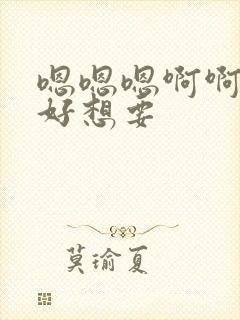 嗯嗯嗯啊啊
好想要
莫瑜夏